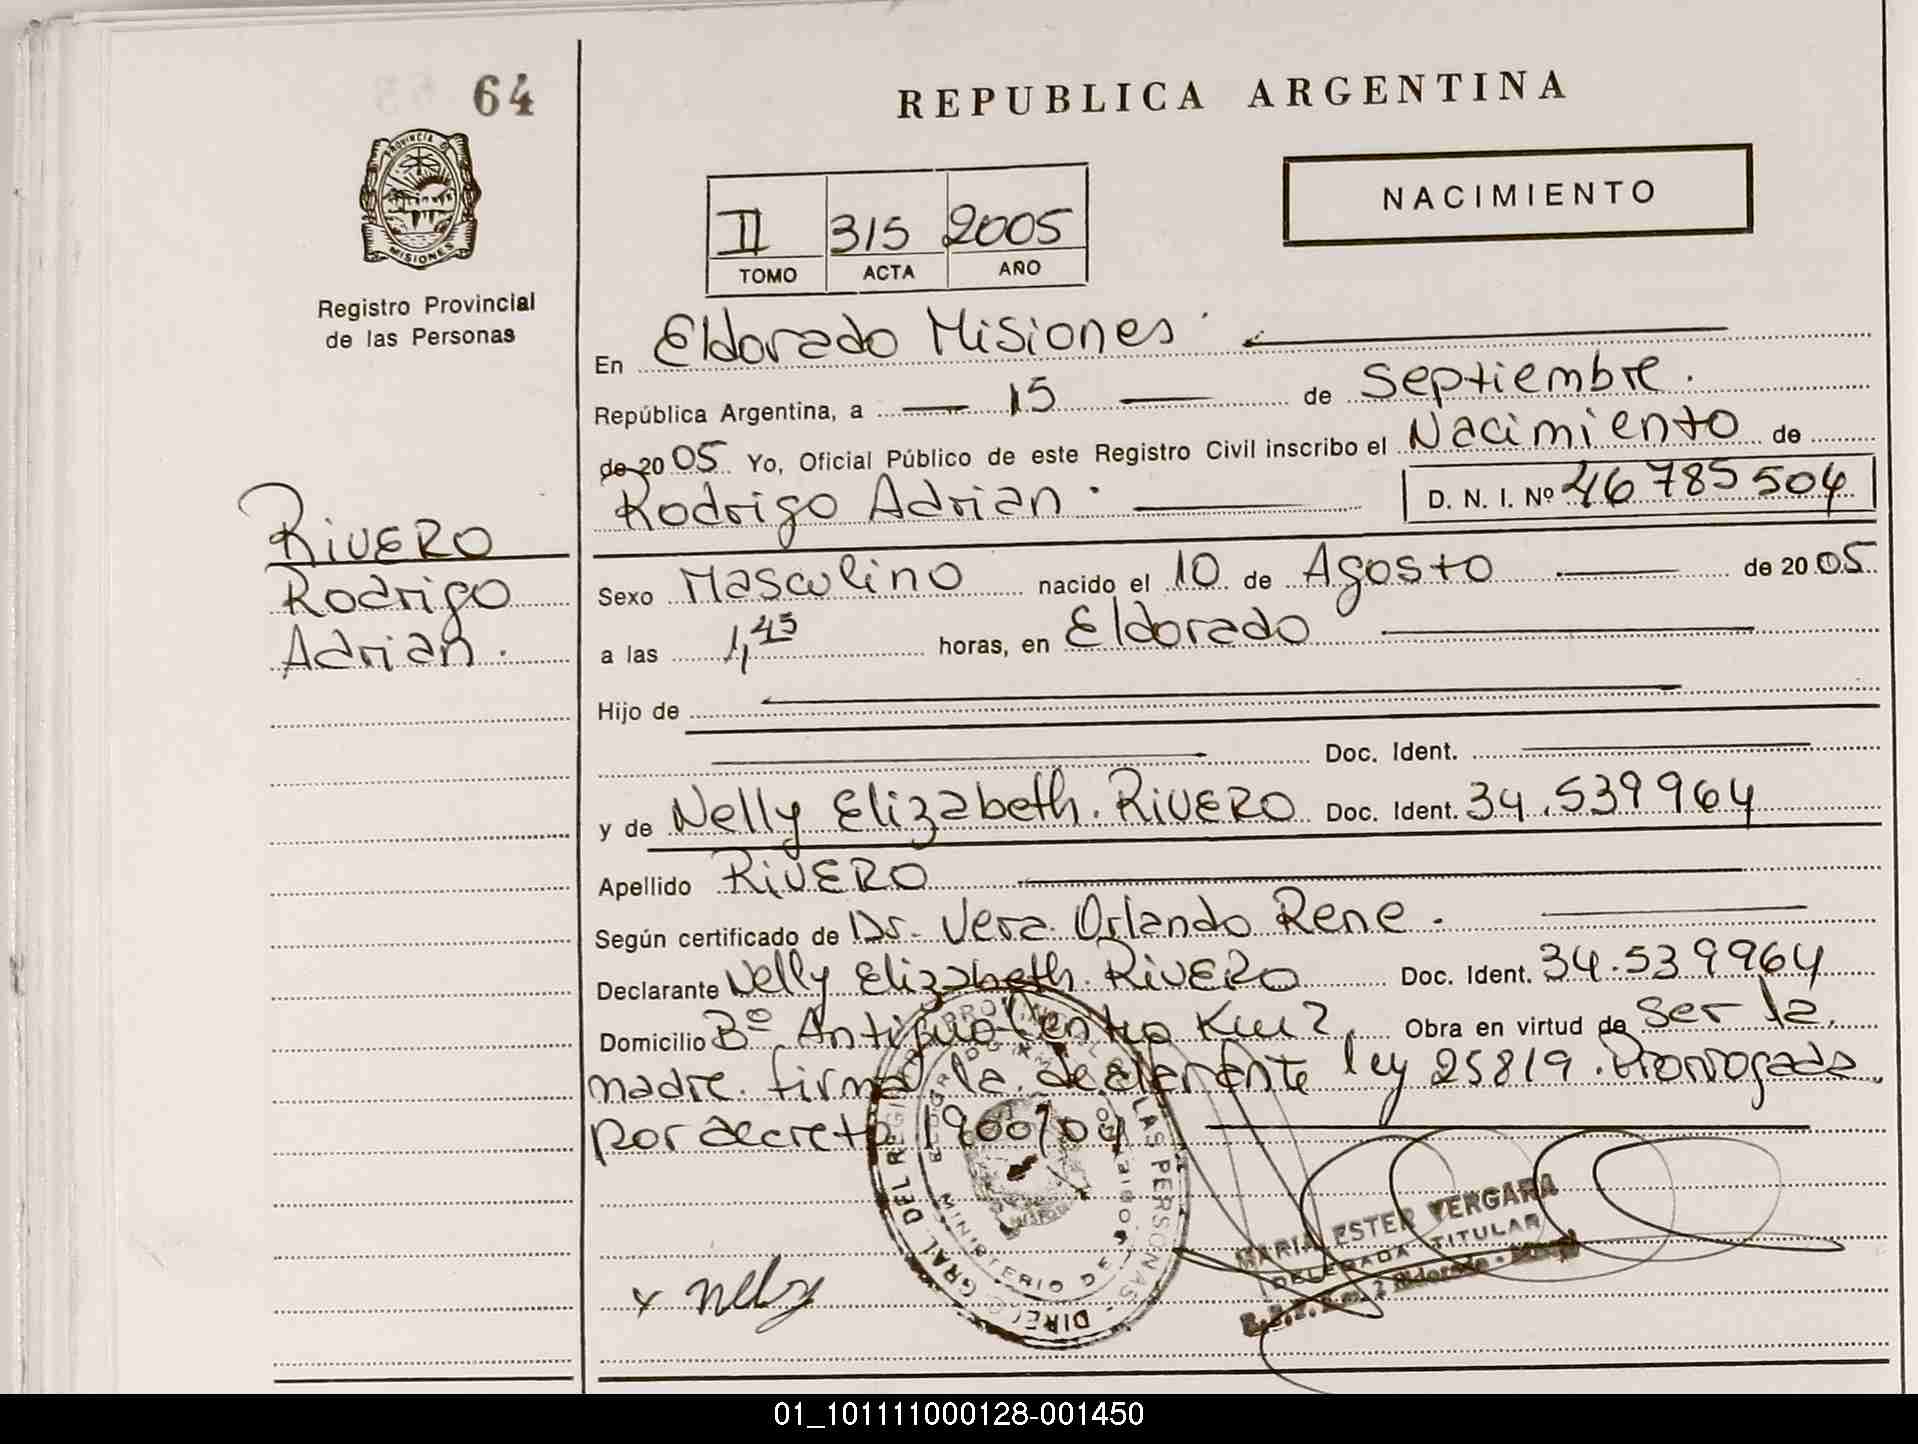 64
REPUBLICA ARGENTINA
PROVINCIA D
MISIONES
Registro Provincial
de las Personas
NACIMIENTO
II 315 2005
TOMO ACTA AÑO
En Eldorado Misiones
República Argentina, a 15 de Septiembre.
de 2005 Yo, Oficial Público de este Registro Civil inscribo el Nacimiento de
Rodrigo Adrian D. N. I. Nº 46785504
RIVERO
Rodrigo
Adrian.
Sexo Masculino nacido el 10 de Agosto de 2005
a las 1,45 horas, en Eldorado
Hijo de
Doc. Ident.
y de Nelly Elizabeth. RIVERO Doc. Ident. 34.539964
Apellido RIVERO
Según certificado de Dr. Vera Orlando Rene.
Declarante Nelly Elizabeth. RIVERO Doc. Ident. 34.539964
Domicilio Bº Antiguo Centro Km 2. Obra en virtud de ser la
madre. firma la declarante ley 25819. Prorrogada
por decreto 1900/04
x Nelly
DIREC. GRAL DEL REGISTRO PROVINCIAL DE LAS PERSONAS
MINISTERIO DE
MARIA ESTER VERGARA
DELEGADA TITULAR
Km. 2 Eldorado -
01_101111000128-001450